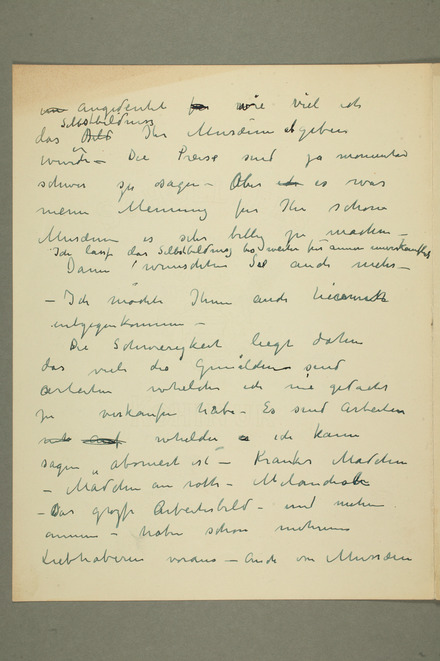 angedeutet wie viel ich
Selbstbildniss
das Bild Ihr Musæum abgeben
würde – Die Preise sind ja momentan
schwer zu sagen – Aber es war
meine Meinung für Ihr schöne
Musæum es sehr billig zu machen –
Ich lasse das Selbstbildniss bis weiter für immer unverkauft
Dann wünschten Sie auch mehr –
– Ich möchte Ihnen auch
entgegenkommen –
Die Schwerigkeit liegt dahin
das viele die Gemälden sind
arbeiten whelche ich nie gedacht
zu verkaufen habe – Es sind Arbeiten
whelche ich kann
sagen „abonnert ist" – Kranke Madchen
– Madchen an roth – Melancholie
– Das grosse Arbeiterbild – und mehre
annen – habe schon mehrere
Liebhaberen voraus – auch von Musæen